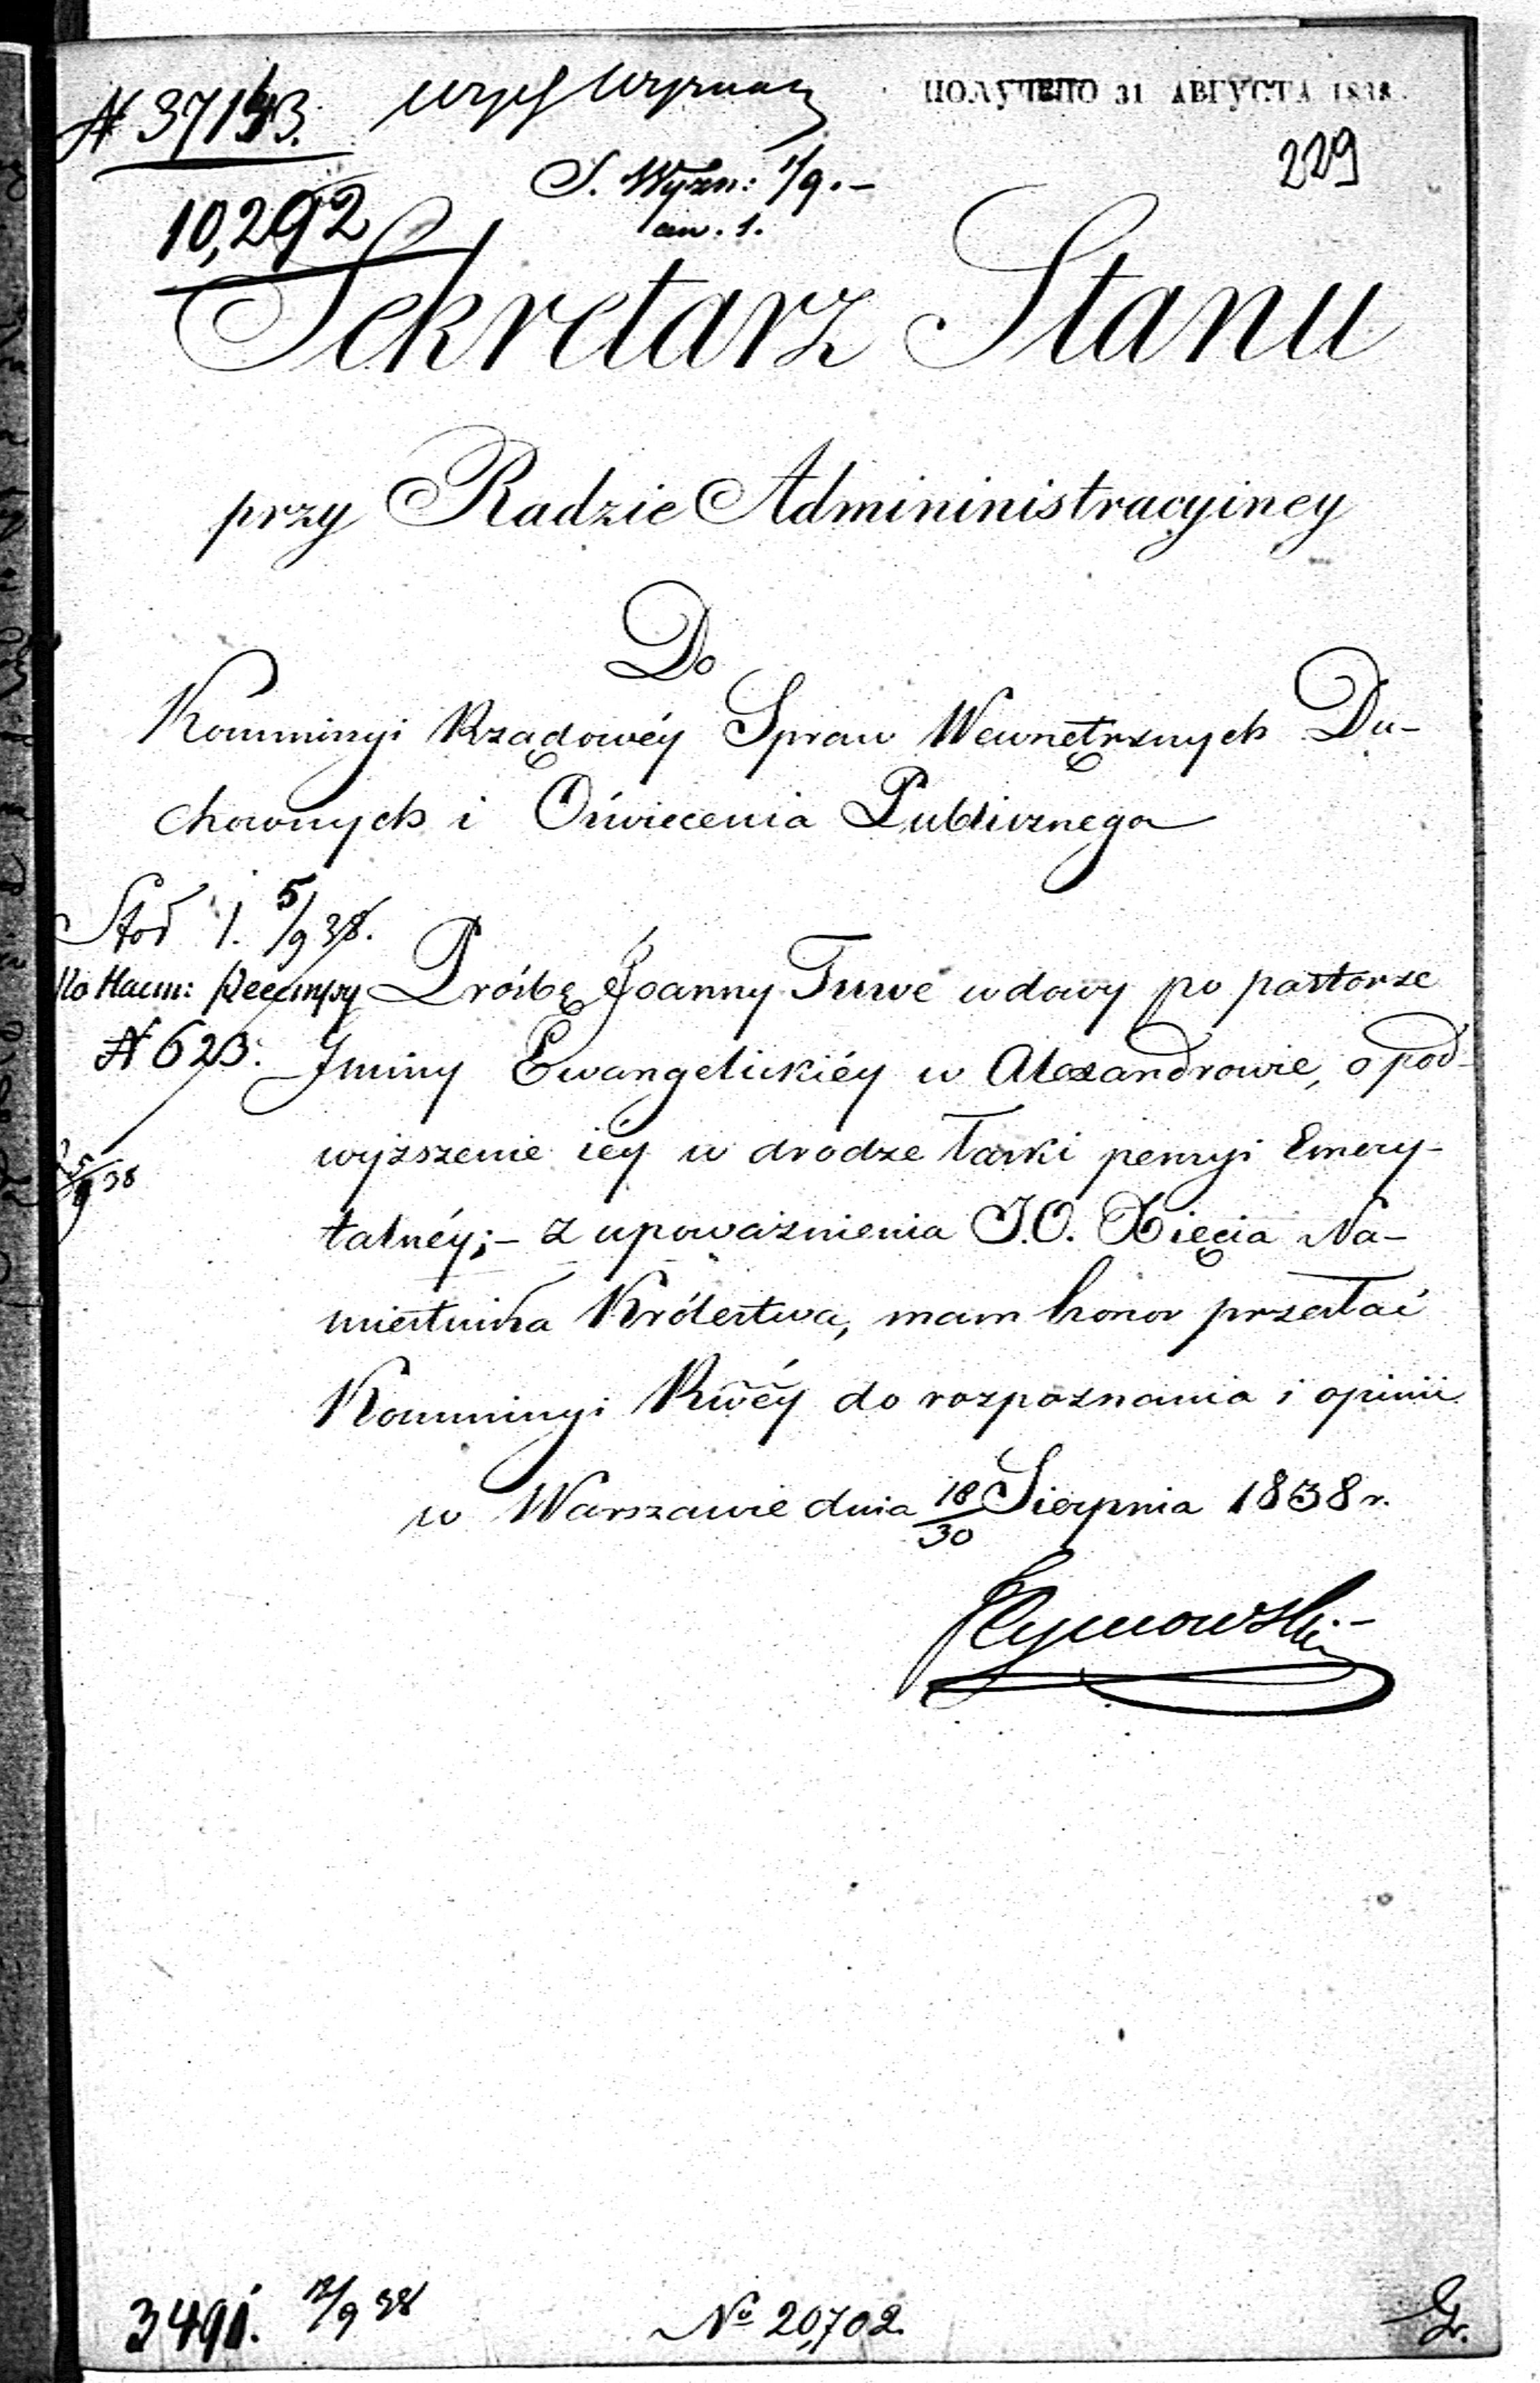 N 37143.
ПОЛУЧЕНО 31 АВГУСТА 1838.
229
10,292
S. Wyzn: 1/9.–
an. 1.
Sekretarz Stanu
przy Radzie Admininistracyiney
Do
Kommissyi Rządowéy Spraw Wewnętrznych Du-
chownych i Oświecenia Publicznego
5/9 38.
Prośbę Joanny Tuwe wdowy po pastorze
N 623.
Gminy Ewangelickiéy w Alexandrowie, o pod-
wyższenie iéy w drodze łaski pensyi Emery-
5/9 38
talnéy;– z upoważnienia J.O. Xięcia Na-
miestnika Królestwa, mam honor przesłać
Kommissyi Rwéy do rozpoznania i opinii
w Warszawie dnia 18/30 Sierpnia 1838 r.
Tymowski
3491. 12/9 38
No 20,702.
Gr.